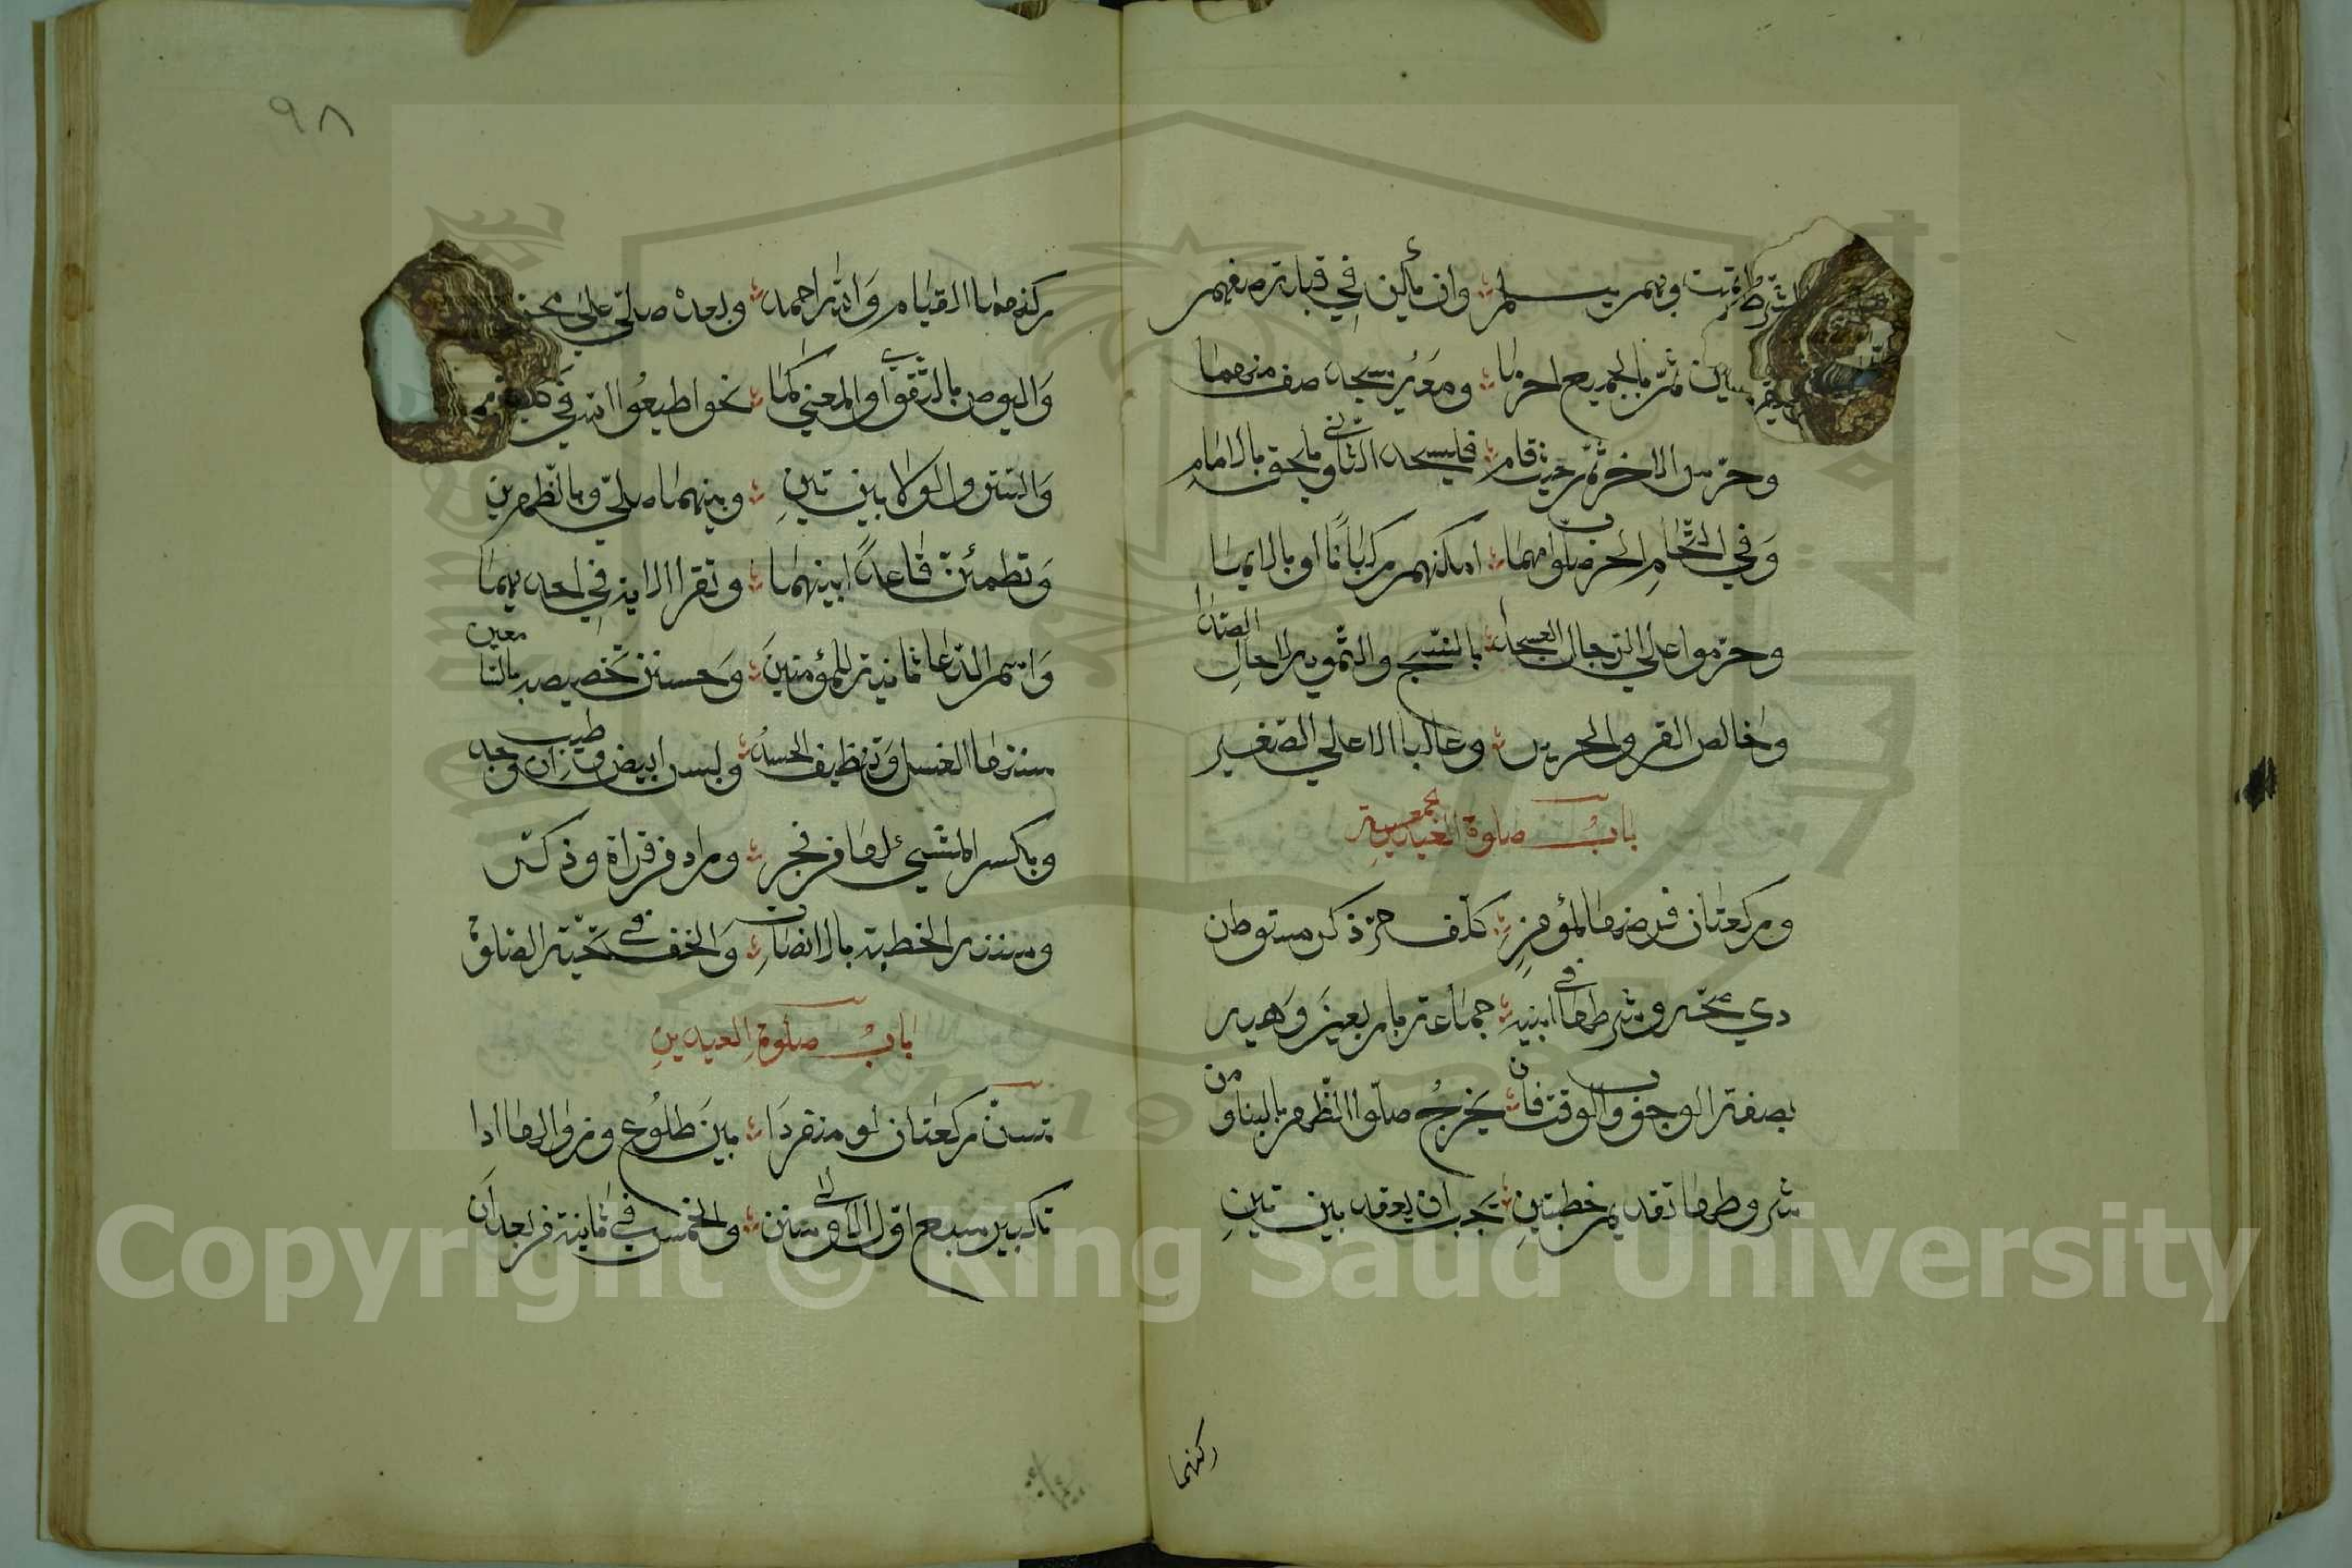 لشرط تمت وبهم يسلم وان يكن في قبلة صفهم
صفين ثم بالجميع احرما ومعه يسجد صف منهما
وحرس الاخر ثم حيث قام فليسجد الثاني ويلحق بالامام
وفي التحام الحرب صلوا مهما امكنهم ركبانا او بالايما
وحرموا على الرجال العسجدا بالنسج والتمويه لا حال الصدا
وخالص القز والحرير وغالبا الا على الصغير
باب صلوة الجمعة
وركعتان فرضها لمؤمن كلف حر ذكر مستوطن
ذي صحة وشرطها في ابنيه جماعة باربعين وهيه
بصفة الوجوب والوقت فان يخرج صلوا الظهر بالبنا ومن
شروطها تقديم خطبتين يجب ان يقعد بين تين
ركنهما
٩٨
ركنهما القيام والله احمد وبعده صلي علي محمد
وليوص بالتقوى او المعني كما نحو اطيعوا الله في كلتيهما
والستر والولا بين تين وبينهما صلي وبالطهرين
وتطمئن قاعدا بينهما وتقرا الاية في احديهما
واسم الدعا ثانية للمؤمنين وحسن تخصيصه بالسامعين
سننها الغسل وتنظيف الجسد ولبس ابيض وطيب ان وجد
وبكر المشي لها من فجر وزاد في قراة وذكر
وسنة الخطبة بالانصات وخف في تحية الصلوة
باب صلوة العيدين
تسن ركعتان لو منفردا بين طلوع وزوالها ادا
تكبير سبع اول الاولى سنن والخمس في ثانية من بعد ان
Copyright © King Saud University